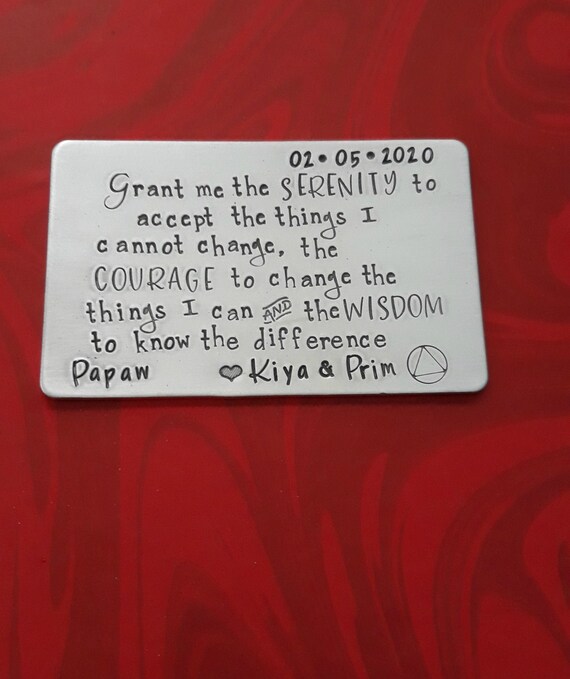 02•05•2020
Grant me the SERENITY to
accept the things I
cannot change, the
COURAGE to change the
things I can AND the WISDOM
to know the difference
Papaw ♥ Kiya & Prim